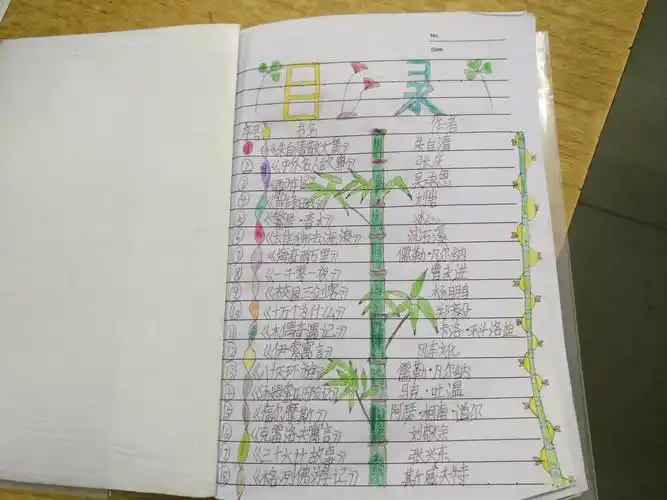 No.
Date
目录
序号 书名 作者
① 《朱自清散文集》 朱自清
② 《中外名人故事》 张庆
③ 《西游记》 吴承恩
④ 刘
⑤ 《繁星·春水》 冰心
⑥ 沈石溪
⑦ 《海底两万里》 儒勒·凡尔纳
⑧ 《一千零一夜》 曹永进
⑨ 《校园三剑客》 杨鹏
⑩ 《十万个为什么》
⑪ 《木偶奇遇记》 卡洛·科洛迪
⑫ 《伊索寓言》
⑬ 儒勒·凡尔纳
马克·吐温
《福尔摩斯》 阿瑟·柯南·道尔
《克雷洛夫寓言》 刘敬余
《三十六计故事》 张兴东
《格列佛游记》